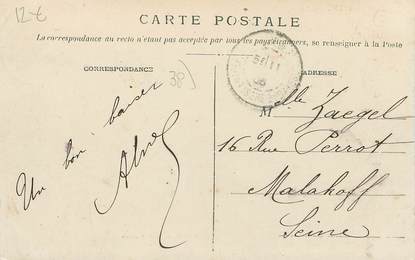 12-€
CARTE POSTALE
La correspondance au recto n'étant pas acceptée par tous les pays étrangers, se renseigner à la Poste
CORRESPONDANCE
ADRESSE
38)
Un bon baiser
Melle Zaegel
16 Rue Perrot
Malakoff
Seine